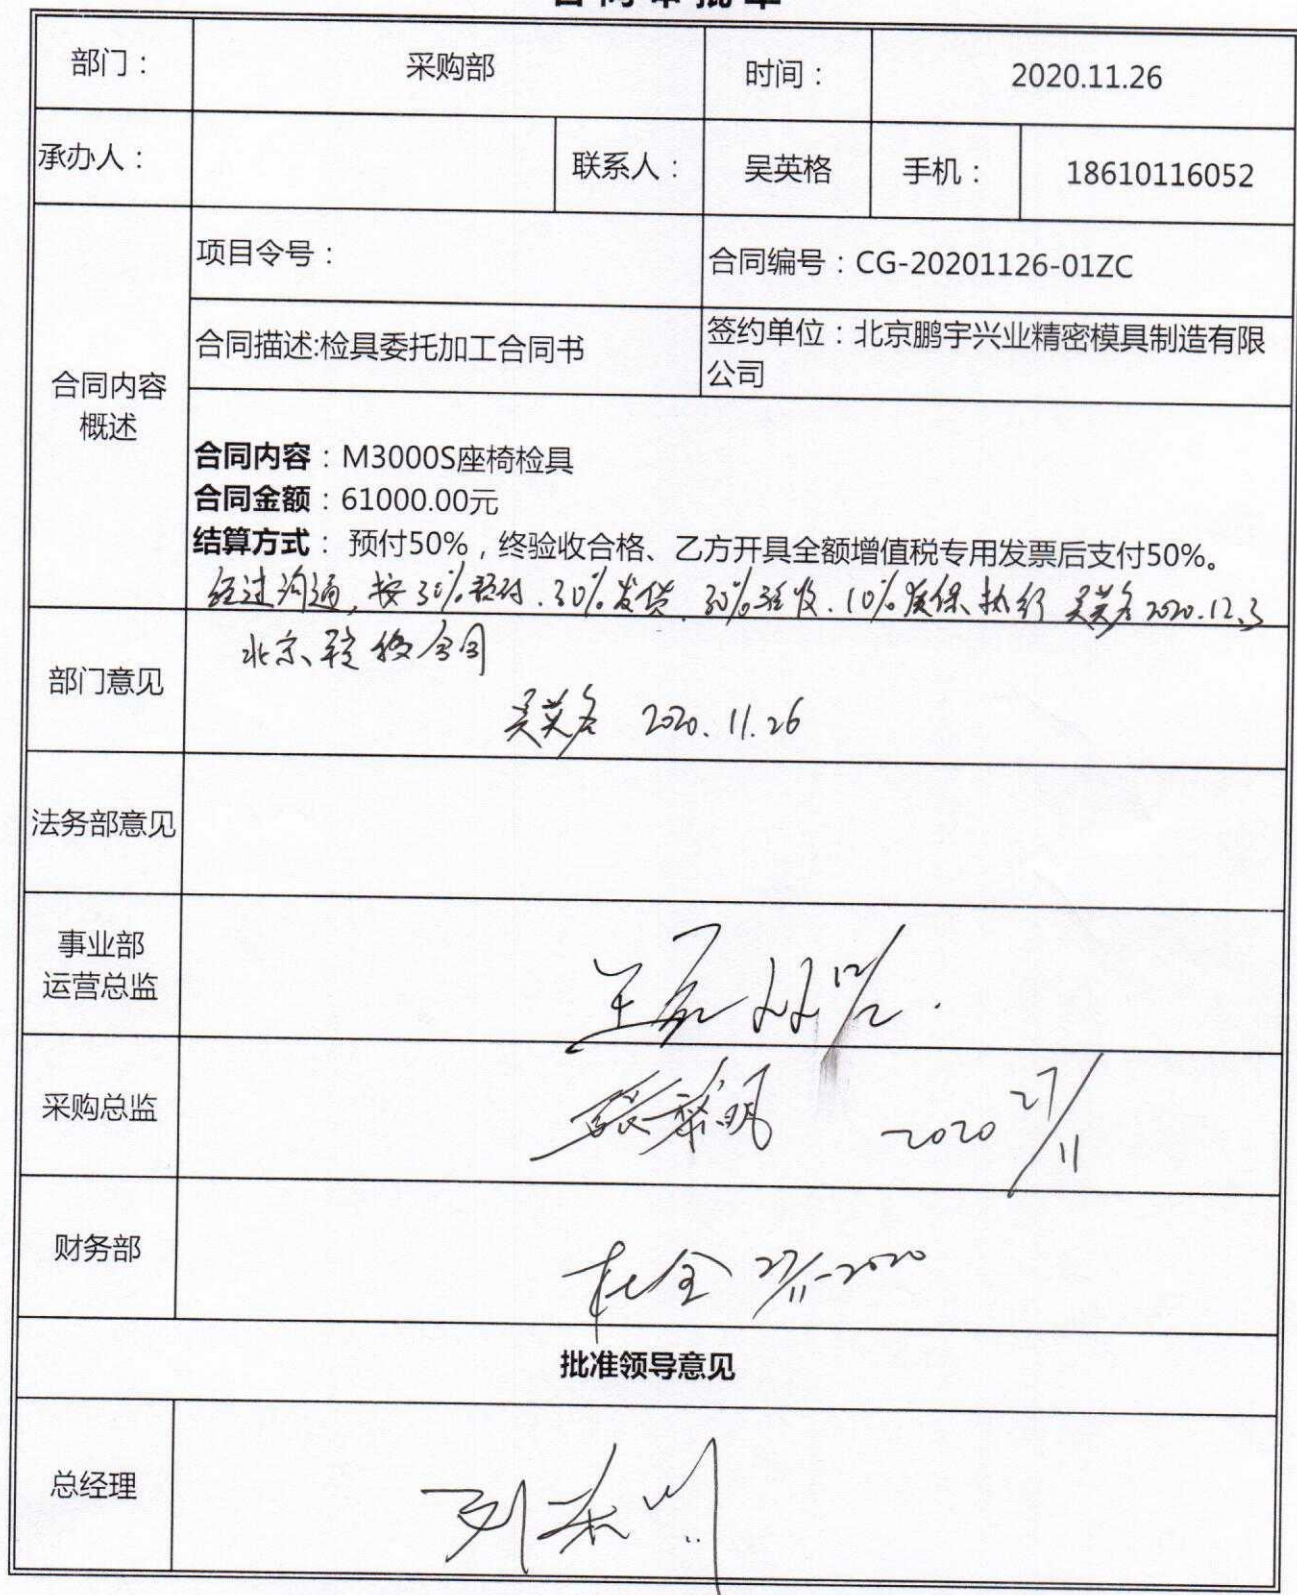 合同审批单
部门： 采购部 时间： 2020.11.26
承办人： 联系人： 吴英格 手机： 18610116052
合同内容
概述
项目令号： 合同编号：CG-20201126-01ZC
合同描述:检具委托加工合同书 签约单位：北京鹏宇兴业精密模具制造有限
公司
合同内容：M3000S座椅检具
合同金额：61000.00元
结算方式： 预付50%，终验收合格、乙方开具全额增值税专用发票后支付50%。
经过沟通，按30%预付.30%发货.30%验收.10%质保执行 吴英格 2020.12.3
部门意见 北京 合同
吴英格 2020.11.26
法务部意见
事业部
运营总监
采购总监 2020 27/11
财务部 杜全 27/11-2020
批准领导意见
总经理